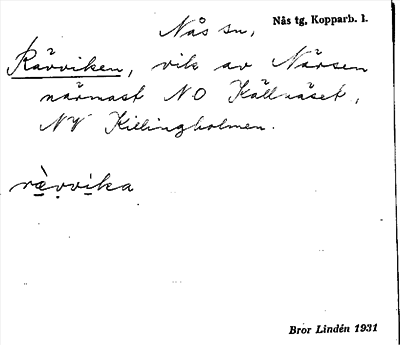 Nås sn, Nås tg, Kopparb. l.
Rävviken, vik av Närsen
närmast NO Källnäset,
NV Killingholmen.
rævvika
Bror Lindén 1931